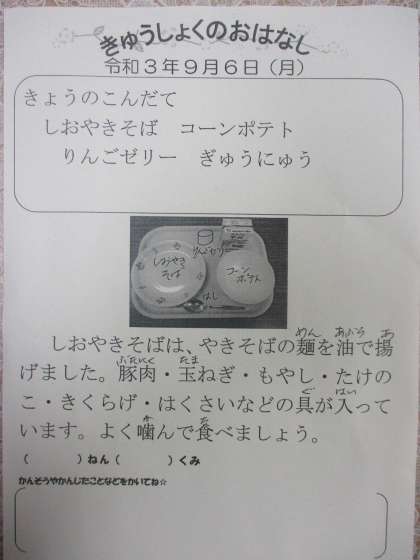 きゅうしょくのおはなし
令和３年９月６日（月）
きょうのこんだて
しおやきそば　コーンポテト
りんごゼリー　ぎゅうにゅう
りんごゼリー
しおやき
そば
コーン
ポテト
はし
しおやきそばは、やきそばの麺を油で揚
めん　あぶら　あ
げました。豚肉・玉ねぎ・もやし・たけの
ぶたにく　たま
こ・きくらげ・はくさいなどの具が入って
ぐ　はい
います。よく噛んで食べましょう。
か　た
（　　　）ねん（　　　）くみ
かんそうやかんじたことなどをかいてね☆